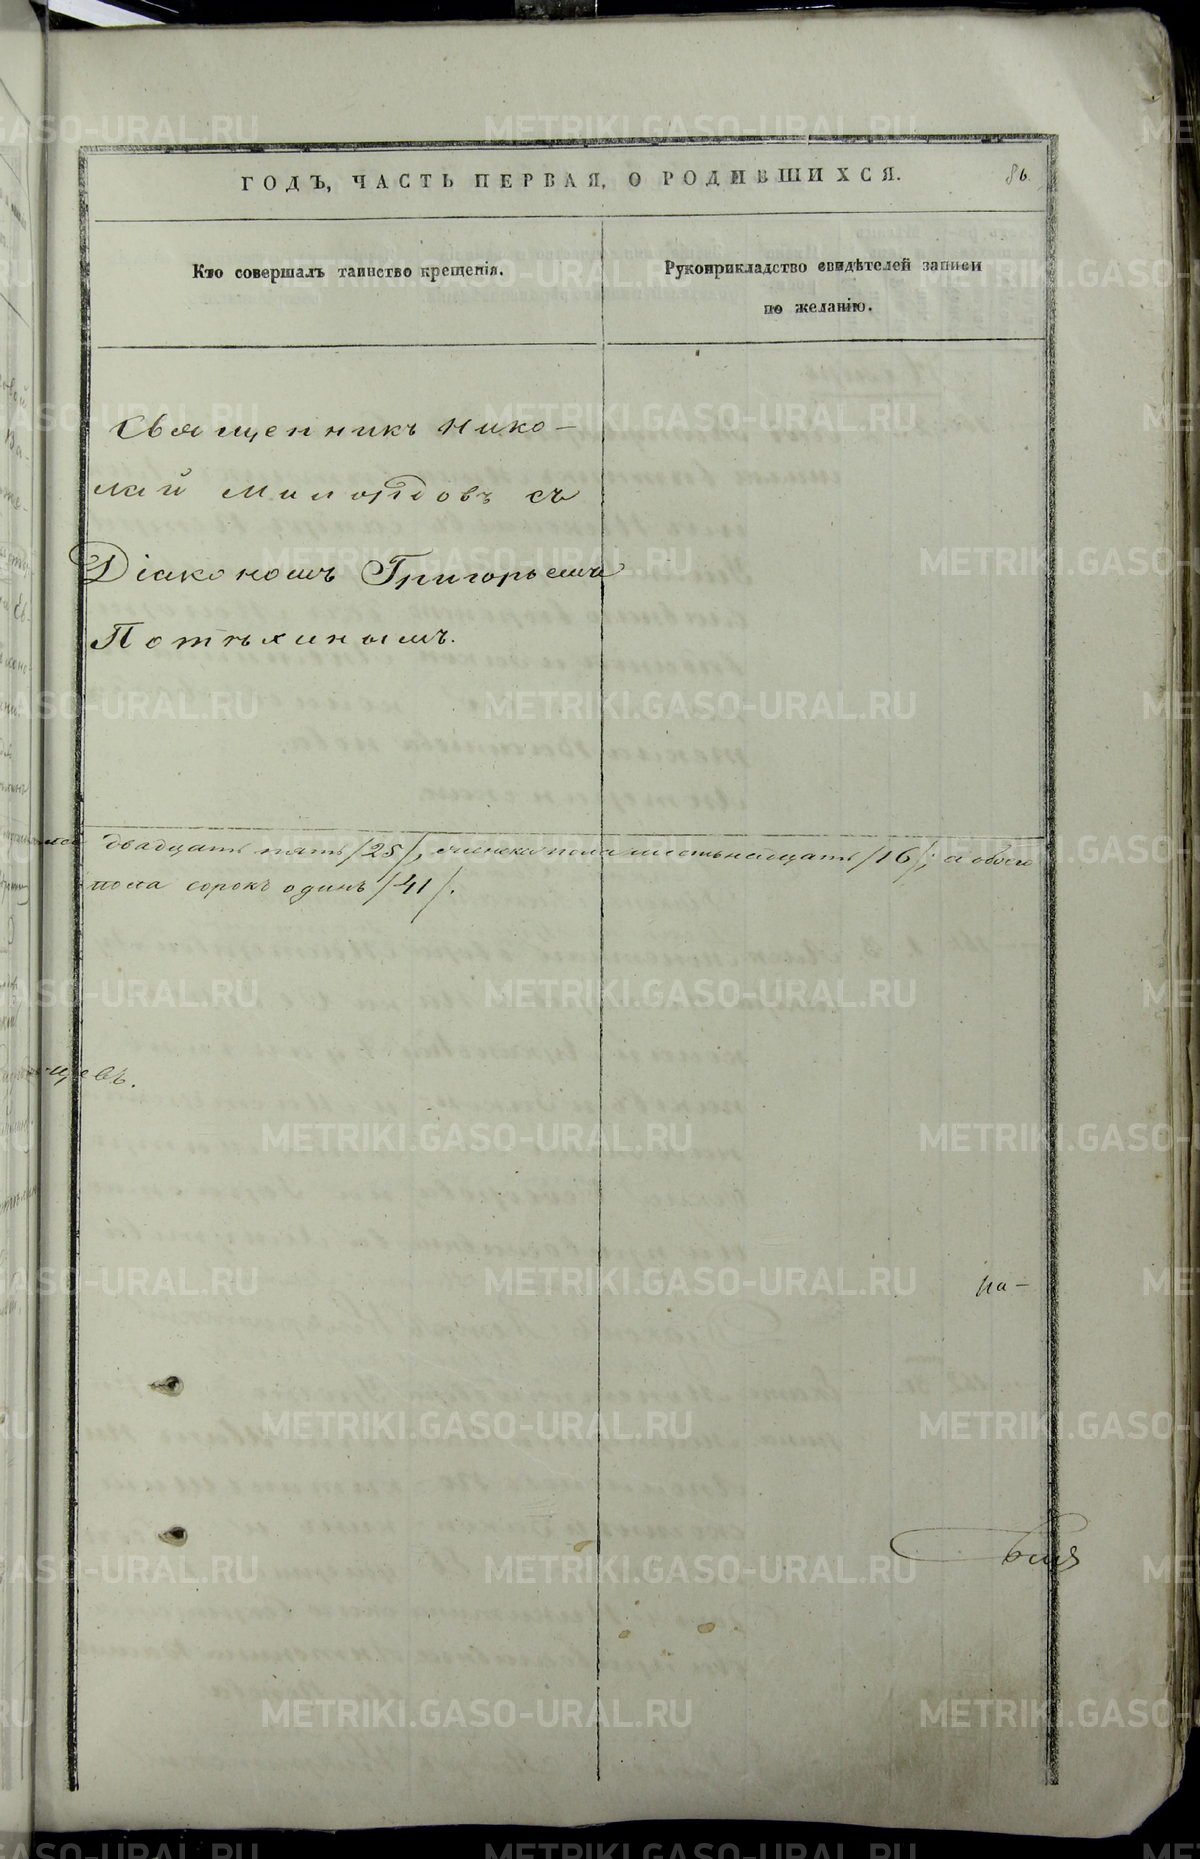 ГОДЪ, ЧАСТЬ ПЕРВАЯ, О РОДИВШИХСЯ.
86
Кто совершалъ таинство крещенія.
Рукоприкладство свидѣтелей записи
по желанію.
Священникъ Нико-
лай съ
Діакономъ Григорьемъ
Потѣхинымъ.
двадцать пять /25/, женска пола шестьнадцать /16/; а обоего
пола сорокъ одинъ /41/.
щевъ.
па-
METRIKI.GASO-URAL.RU